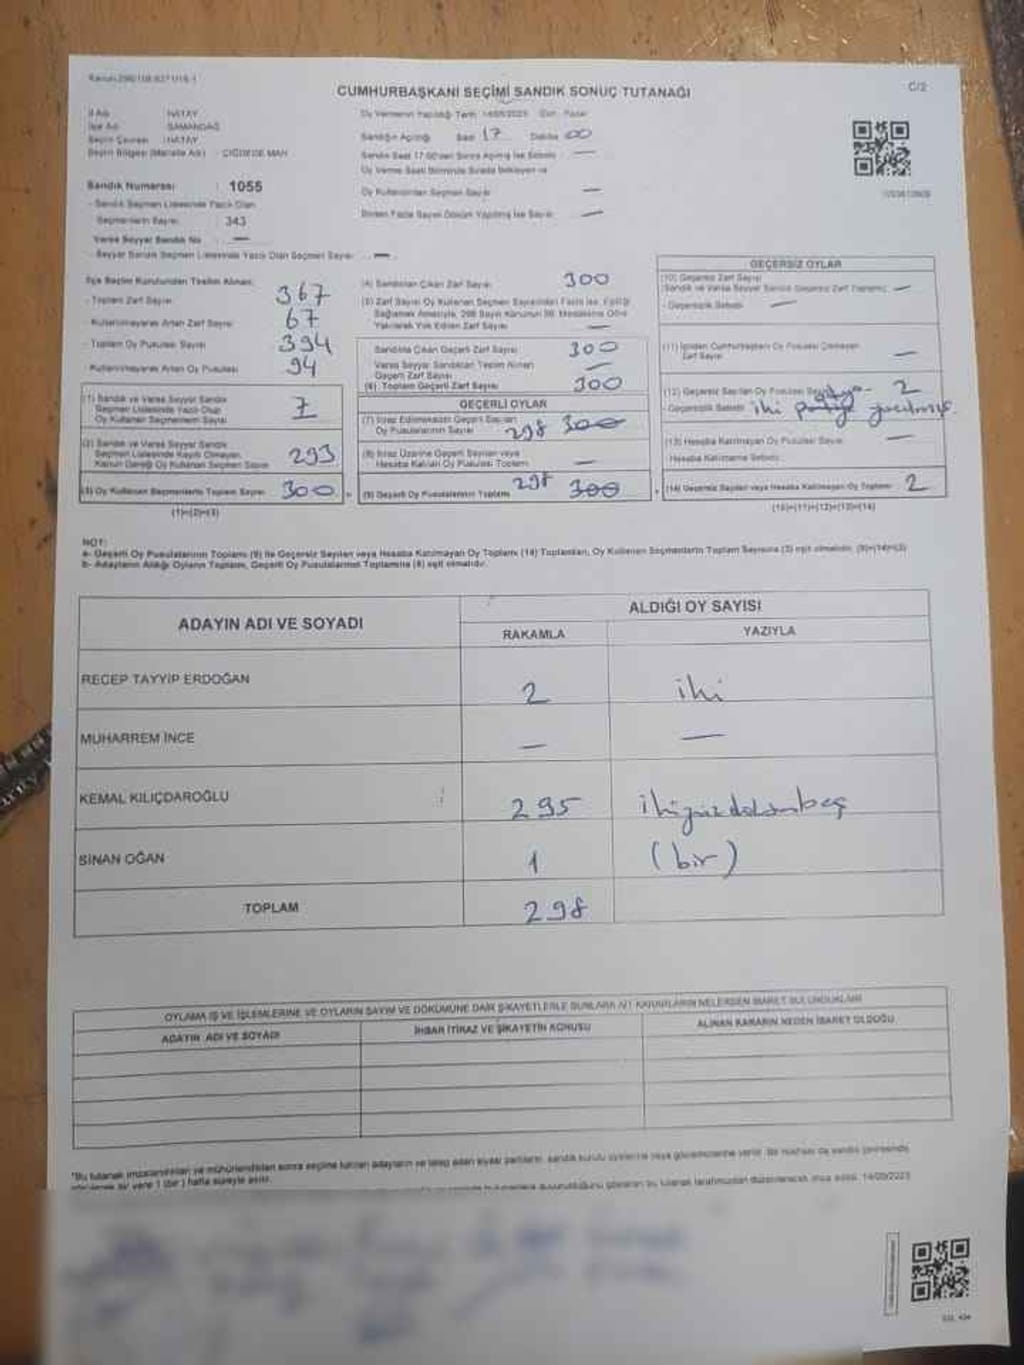 CUMHURBAŞKANI SEÇİMİ SANDIK SONUÇ TUTANAĞI
C/2
İl Adı : HATAY
İlçe Adı : SAMANDAĞ
Seçim Çevresi : HATAY
Seçim Bölgesi (Mahalle Adı) : ÇİĞDEDE MAH.
Oy Vermenin Yapıldığı Tarih: 14/05/2023 Gün: Pazar
Sandığın Açılışı Saat 17 Dakika 00
Sandık Saat 17.00'den Sonra Açılmış İse Sebebi —
Oy Verme Saati Bitiminde Sırada Bekleyen ve
Oy Kullandırılan Seçmen Sayısı —
Birden Fazla Sayım Döküm Yapılmış İse Sayısı —
Sandık Numarası : 1055
- Sandık Seçmen Listesinde Yazılı Olan
Seçmenlerin Sayısı : 343
Varsa Seyyar Sandık No —
- Seyyar Sandık Seçmen Listesinde Yazılı Olan Seçmen Sayısı —
İlçe Seçim Kurulundan Teslim Alınan:
- Toplam Zarf Sayısı 367
- Kullanılmayarak Artan Zarf Sayısı 67
- Toplam Oy Pusulası Sayısı 394
- Kullanılmayarak Artan Oy Pusulası 94
(1) Sandık ve Varsa Seyyar Sandık
Seçmen Listesinde Yazılı Olup
Oy Kullanan Seçmenlerin Sayısı 7
(2) Sandık ve Varsa Seyyar Sandık
Seçmen Listesinde Kayıtlı Olmayan,
Kanun Gereği Oy Kullanan Seçmen Sayısı 293
(3) Oy Kullanan Seçmenlerin Toplam Sayısı 300
(1)+(2)=(3)
(4) Sandıktan Çıkan Zarf Sayısı 300
(5) Zarf Sayısı Oy Kullanan Seçmen Sayısından Fazla İse, Eşitliği
Sağlamak Amacıyla, 298 Sayılı Kanunun 98. Maddesine Göre
Yakılarak Yok Edilen Zarf Sayısı —
Sandıkta Çıkan Geçerli Zarf Sayısı 300
Varsa Seyyar Sandıktan Teslim Alınan
Geçerli Zarf Sayısı —
(6) Toplam Geçerli Zarf Sayısı 300
GEÇERLİ OYLAR
(7) İtiraz Edilmeksizin Geçerli Sayılan
Oy Pusulalarının Sayısı 298 300
(8) İtiraz Üzerine Geçerli Sayılan veya
Hesaba Katılan Oy Pusulası Toplamı —
(9) Geçerli Oy Pusulalarının Toplamı 298 300
GEÇERSİZ OYLAR
(10) Geçersiz Zarf Sayısı
(Sandık ve Varsa Seyyar Sandık Geçersiz Zarf Toplamı) —
- Geçersizlik Sebebi —
(11) İçinden Cumhurbaşkanı Oy Pusulası Çıkmayan
Zarf Sayısı —
(12) Geçersiz Sayılan Oy Pusulası 2
- Geçersizlik Sebebi iki
(13) Hesaba Katılmayan Oy Pusulası Sayısı —
- Hesaba Katılmama Sebebi
(14) Geçersiz Sayılan veya Hesaba Katılmayan Oy Toplamı 2
(10)+(11)+(12)+(13)=(14)
NOT:
a- Geçerli Oy Pusulalarının Toplamı (9) ile Geçersiz Sayılan veya Hesaba Katılmayan Oy Toplamı (14) Toplamları, Oy Kullanan Seçmenlerin Toplam Sayısına (3) eşit olmalıdır. (9)+(14)=(3)
b- Adayların Aldığı Oyların Toplamı, Geçerli Oy Pusulalarının Toplamına (9) eşit olmalıdır.
ADAYIN ADI VE SOYADI
ALDIĞI OY SAYISI
RAKAMLA YAZIYLA
RECEP TAYYİP ERDOĞAN 2 iki
MUHARREM İNCE — —
KEMAL KILIÇDAROĞLU 295 ikiyüzdoksanbeş
SİNAN OĞAN 1 (bir)
TOPLAM 298
OYLAMA İŞ VE İŞLEMLERİNE VE OYLARIN SAYIM VE DÖKÜMÜNE DAİR ŞİKAYETLERLE BUNLARA AİT KARARLARIN NELERDEN İBARET BULUNDUKLARI
ADAYIN ADI VE SOYADI
İHBAR İTİRAZ VE ŞİKAYETİN KONUSU
ALINAN KARARIN NEDEN İBARET OLDUĞU